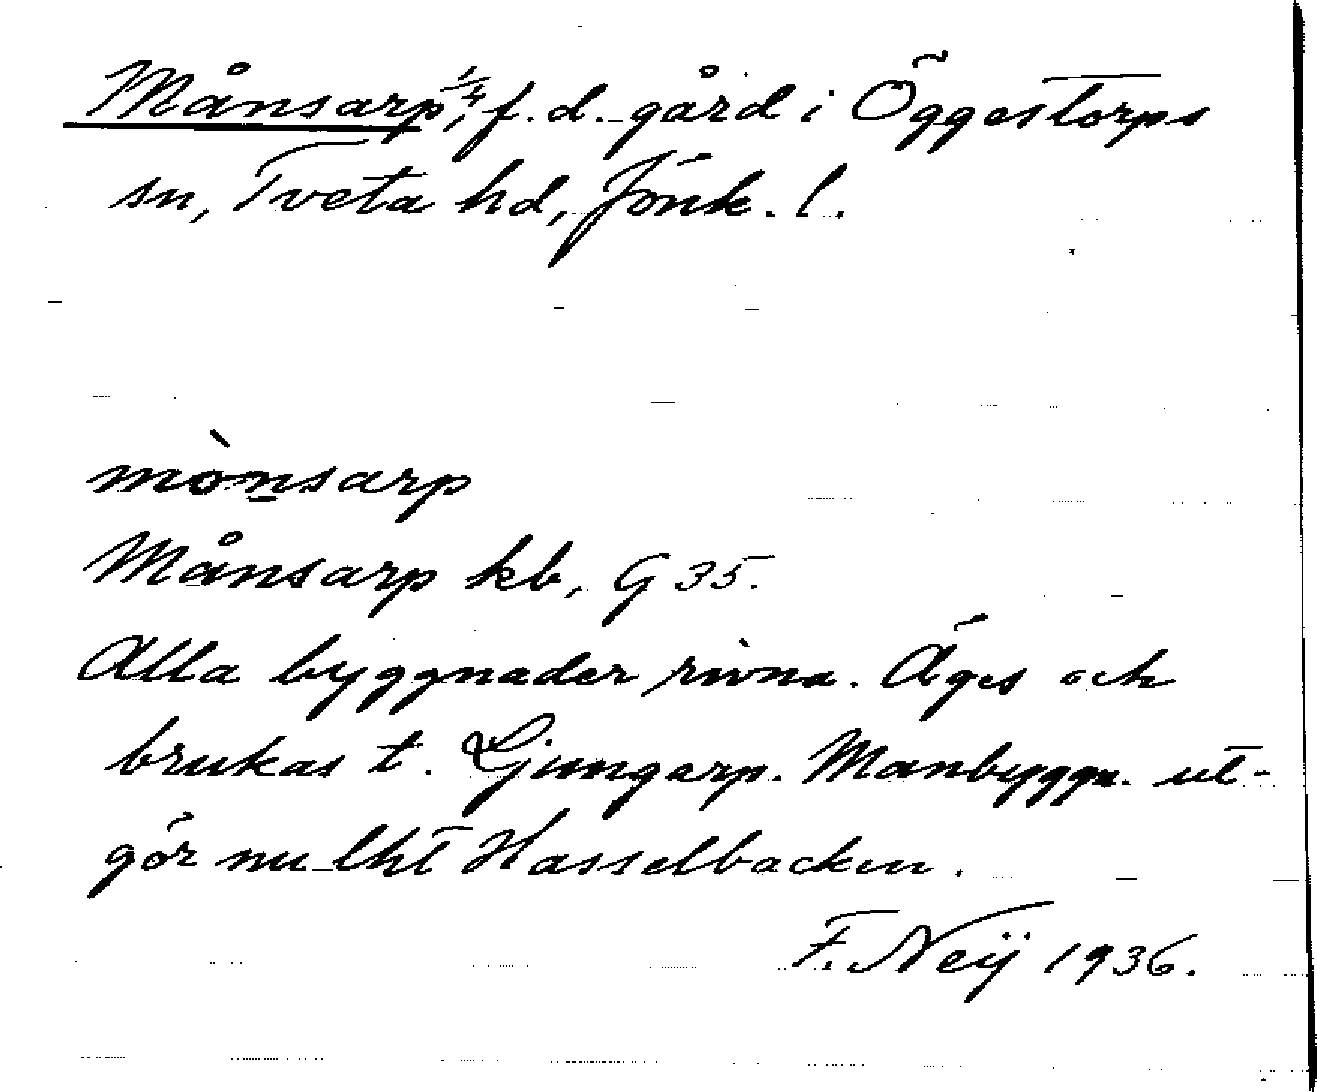 Månsarp, 1/4, f. d. gård i Öggestorps
sn, Tveta hd, Jönk. l.
mònsarp
Månsarp kb, G 35.
Alla byggnader rivna. Äges och
brukas t. Ljungarp. Manbyggn. ut-
gör nu lht Hasselbacken.
F. Neij 1936.